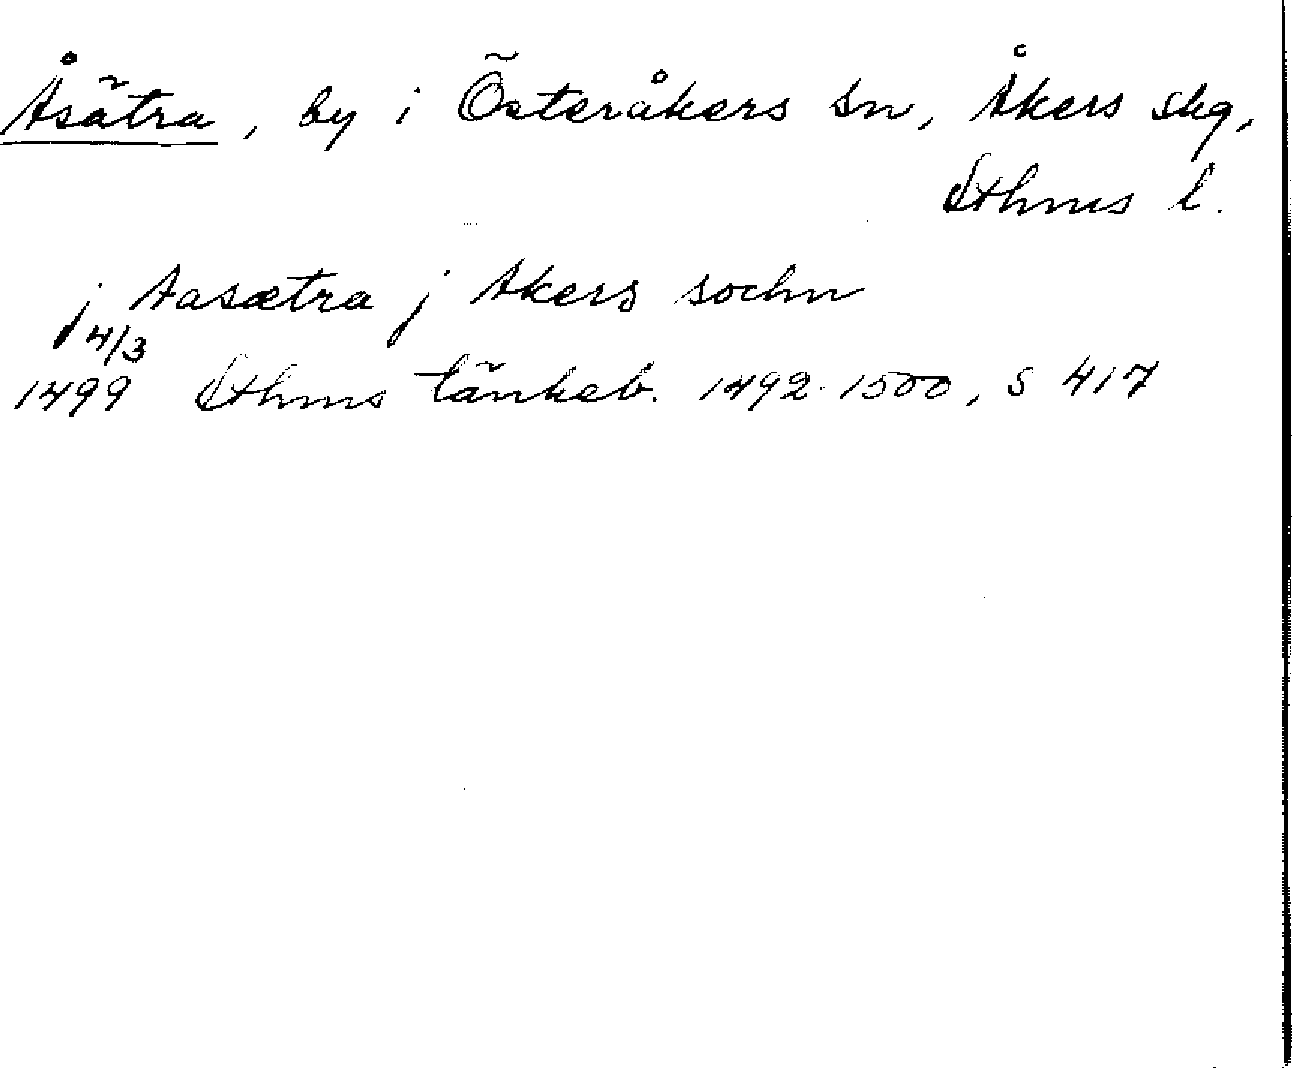 Åsätra, by i Österåkers sn, Åkers skg,
Sthms l.
j Aasætra j Akers sochn
4/3
1499 Sthms tänkeb. 1492-1500, s 417